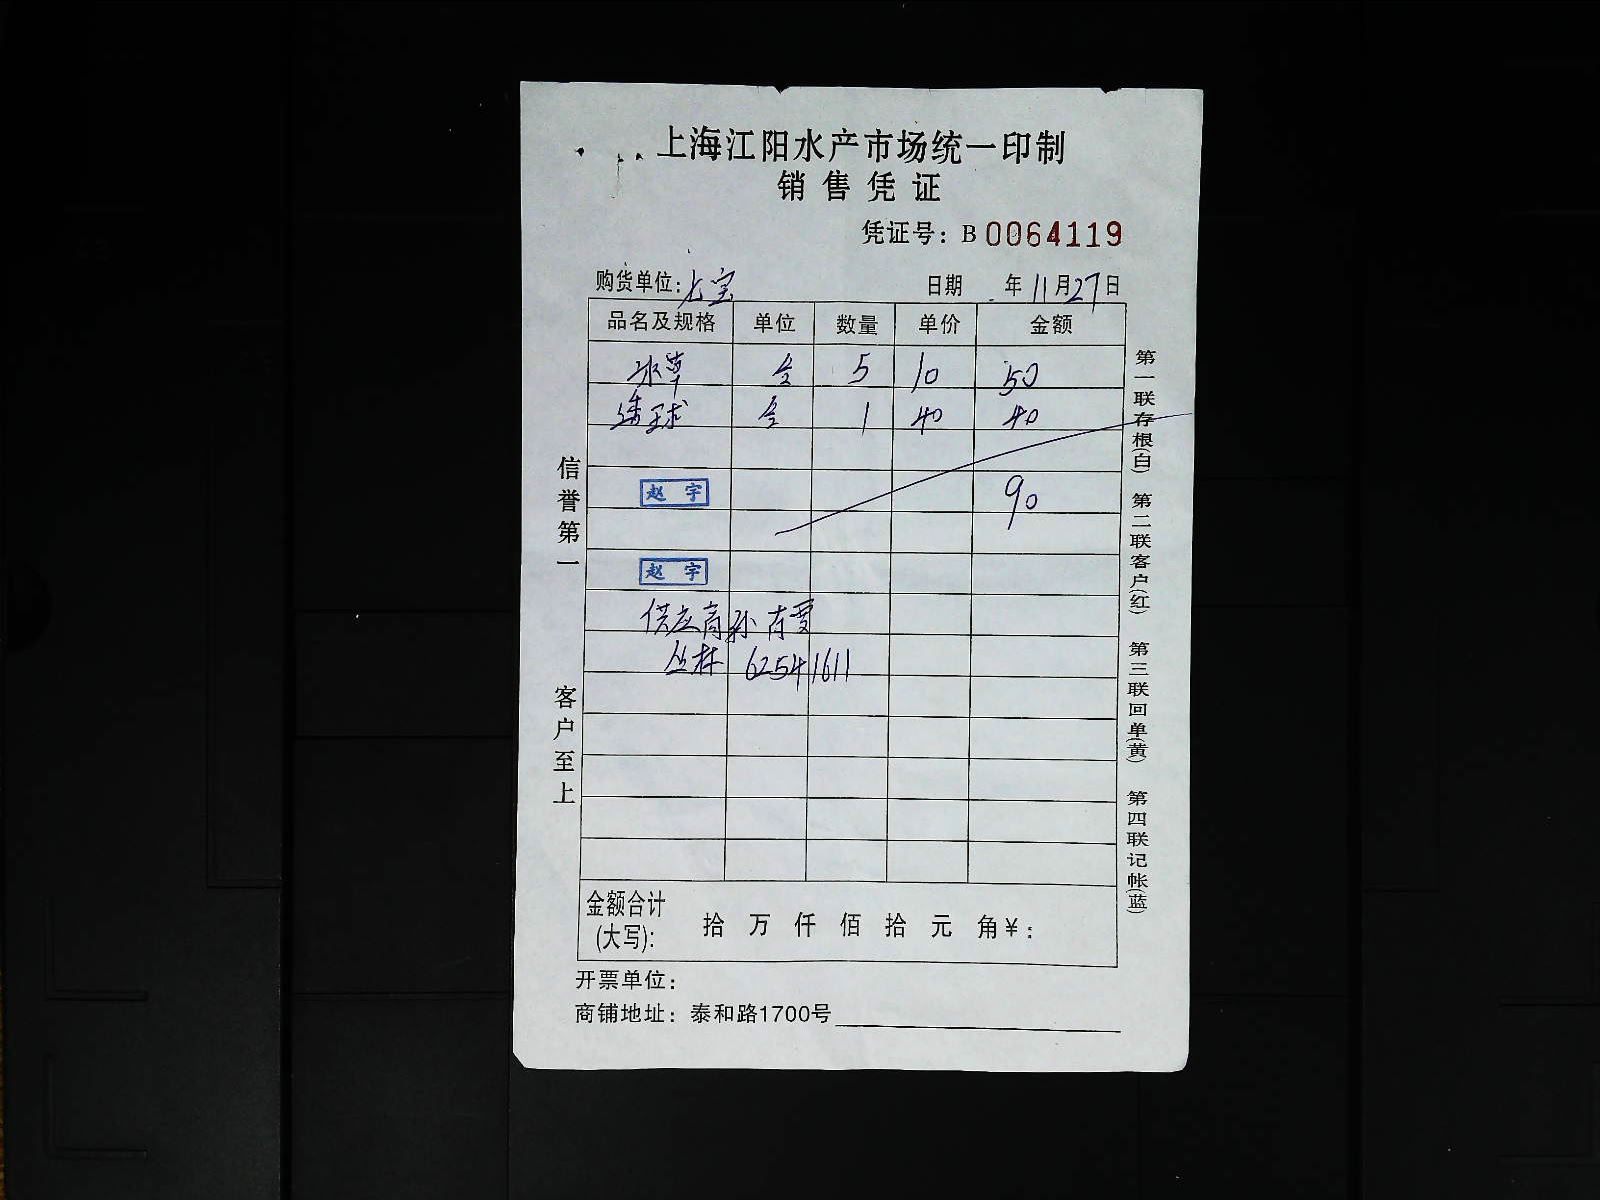 上海江阳水产市场统一印制
销售凭证
凭证号：B 0064119
购货单位：七宝 日期 年11月27日
品名及规格 单位 数量 单价 金额
水草 5 10 50
球 1 40 40
90
赵宇
赵宇
供应商孙
丛林 62541611
金额合计(大写)： 拾 万 仟 佰 拾 元 角￥：
开票单位：
商铺地址：泰和路1700号
信誉第一 客户至上
第一联存根(白) 第二联客户(红) 第三联回单(黄) 第四联记帐(蓝)